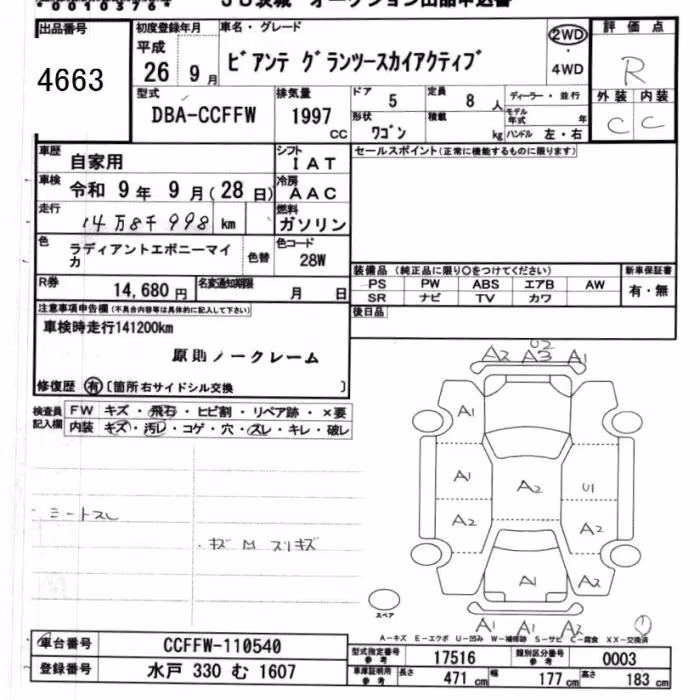 出品番号
4663
初度登録年月
平成
26 9 月
車名・グレード
ビアンテ グランツースカイアクティブ
2WD
・
4WD
評価点
R
外装 内装
C C
型式
DBA-CCFFW
排気量
1997
CC
ドア
5
定員
8 人
形状
ワゴン
積載
kg
ディーラー・並行
モデル年式
年
ハンドル 左・右
車歴
自家用
シフト
IAT
セールスポイント(正常に機能するものに限ります)
車検
令和 9 年 9 月(28 日)
冷房
AAC
走行
14万8千998 km
燃料
ガソリン
色
ラディアントエボニーマイカ
色替
色コード
28W
R券
14,680 円
名変通知期限
月 日
装備品(純正品に限り○をつけてください)
PS PW ABS エアB AW
SR ナビ TV カワ
新車保証書
有・無
後日品
注意事項申告欄(不具合内容等は具体的に記入して下さい)
車検時走行141200km
原則ノークレーム
修復歴 有 〔箇所 右サイドシル交換 〕
検査員記入欄
FW キズ・飛石・ヒビ割・リペア跡・×要
内装 キズ・汚レ・コゲ・穴・スレ・キレ・破レ
シートスレ
・キズ M スリキズ
U2
A2 A3 A1
A1
A1 A2 U1
A2 A2
A1 A2
A1 A1 A1
スペア
A-キズ E-エクボ U-凹み W-補修跡 S-サビ C-腐食 XX-交換済
車台番号
CCFFW-110540
登録番号
水戸 330 む 1607
型式指定番号
参考
17516
類別区分番号
参考
0003
車庫証明用
参考
長さ 471 cm
幅 177 cm
高さ 183 cm